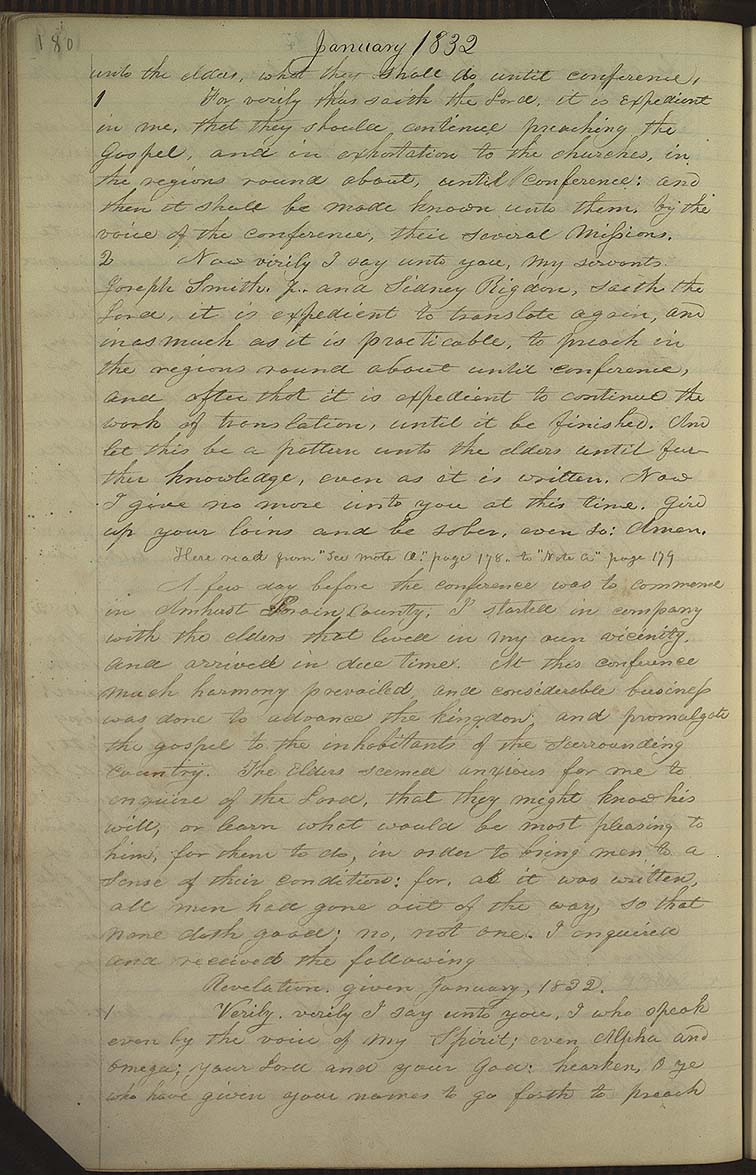 180
January 1832
unto the elders, what they shall do until conference,
1 For verily thus saith the Lord, it is expedient
in me, that they should continue preaching the
Gospel, and in exhortation to the churches, in
the regions round about, until conference: and
then it shall be made known unto them, by the
voice of the conference, their several Missions.
2 Now virily I say unto you, my servants
Joseph Smith. Jr. and Sidney Rigdon, saith the
Lord, it is expedient to translate again, and
inasmuch as it is practicable, to preach in
the regions round about until conference,
and after that it is expedient to continue the
work of translation, until it be finished. And
let this be a pattern unto the elders until fur-
ther knowledge, even as it is written. Now
I give no more unto you at this time. Gird
up your loins and be sober, even so: Amen.
Here read from "See note A." page 178. to "Note C." page 179
A few day before the conference was to commence
in Amherst Lorain County, I started in company
with the elders that lived in my own vicinity,
and arrived in due time. At this conference
much harmony prevailed, and considerable business
was done to advance the kingdom, and promulgate
the gospel to the inhabitants of the surrounding
Country. The Elders seemed anxious for me to
enquire of the Lord, that they might know his
will, or learn what would be most pleasing to
him, for them to do, in order to bring men to a
sense of their condition: for, as it was written,
all men had gone out of the way, so that
none doth good; no, not one. I enquired
and received the following
Revelation. given January, 1832.
1 Verily. verily I say unto you, I who speak
even by the voice of my Spirit; even Alpha and
Omega; your Lord and your God: hearken, O ye
who have given your names to go forth to preach